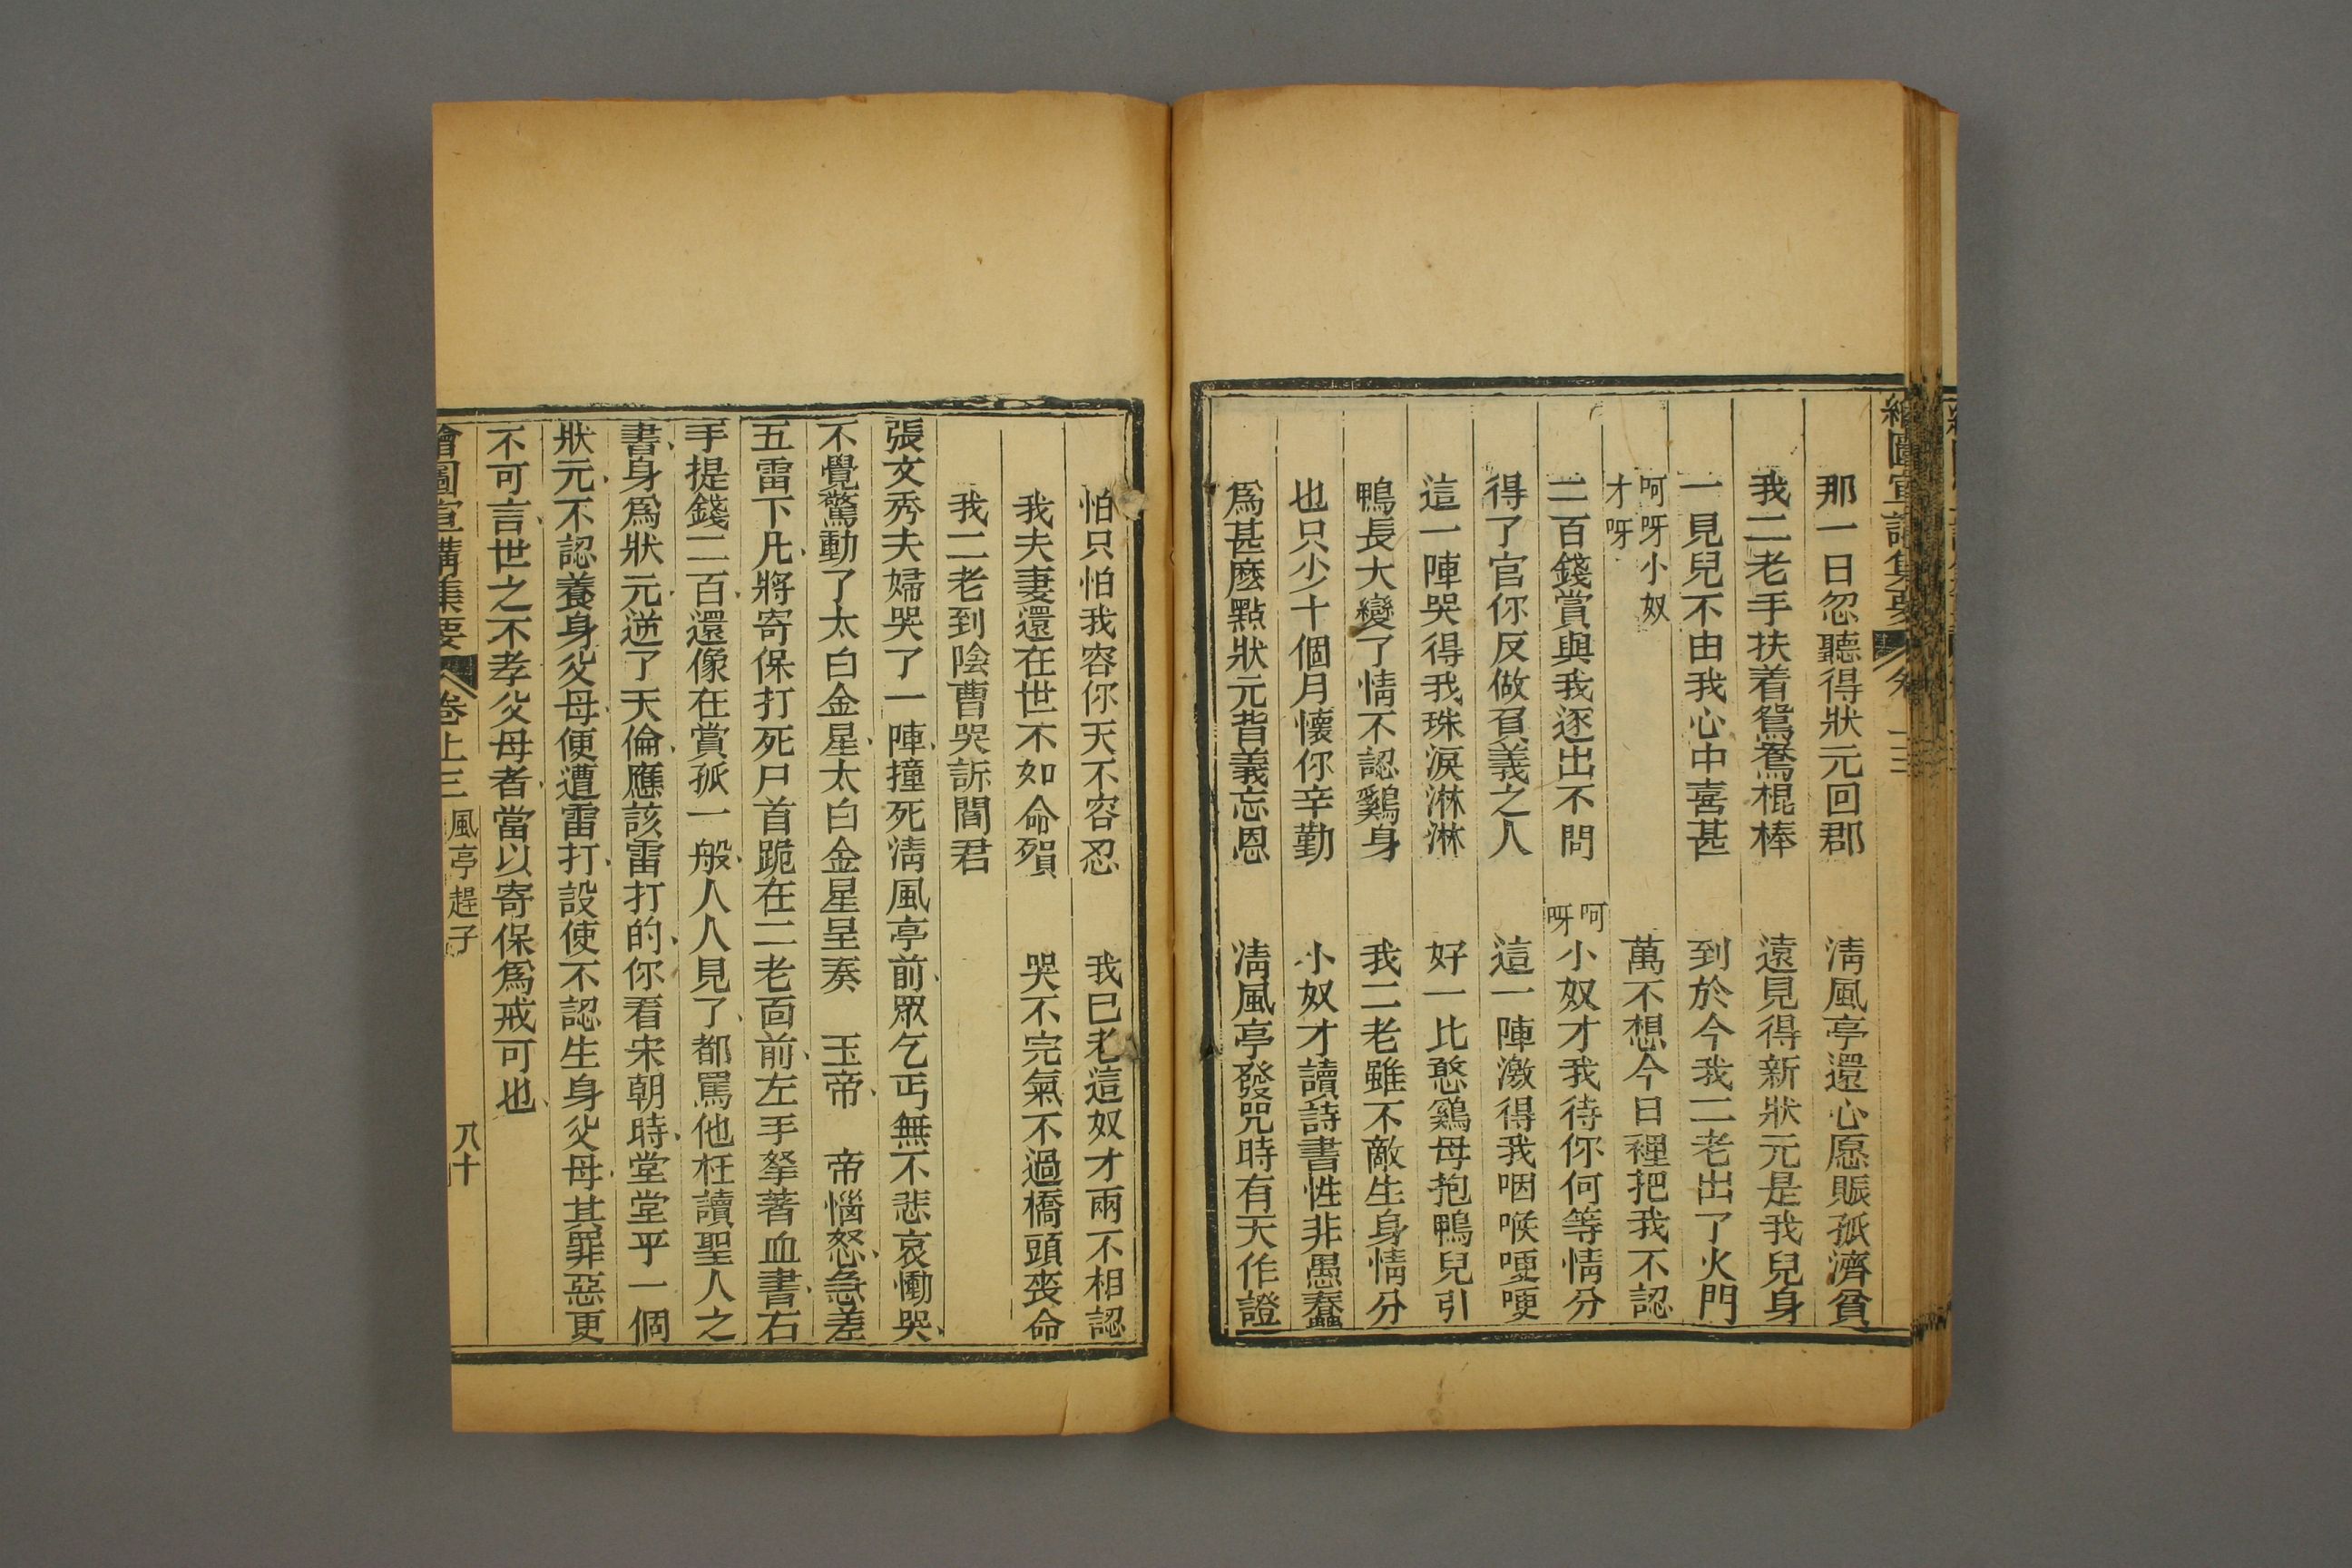 那一日忽聽得狀元回郡 淸風亭還心愿賑孤濟貧
我二老手扶着鴛鴦棍棒 遠見得新狀元是我兒身
一見兒不由我心中喜甚 到於今我二老出了火門
呵呀小奴才呀 萬不想今日裡把我不認
二百錢賞與我逐出不問 呵呀小奴才我待你何等情分
得了官你反做負義之人 這一陣激得我咽喉哽哽
這一陣哭得我珠淚淋淋 好一比憨鷄母抱鴨兒引
鴨長大變了情不認鷄身 我二老雖不敵生身情分
也只少十個月懷你辛勤 小奴才讀詩書性非愚蠢
爲甚麽點狀元背義忘恩 淸風亭發咒時有天作證
怕只怕我容你天不容忍 我已老這奴才兩不相認
我夫妻還在世不如命殞 哭不完氣不過橋頭喪命
我二老到陰曹哭訴閻君
張文秀夫婦哭了一陣、撞死淸風亭前、眾乞丐無不悲哀慟哭、
不覺驚動了太白金星、太白金星呈奏 玉帝、 帝惱怒、急差
五雷下凡、將寄保打死尸首跪在二老面前、左手拏著血書、右
手提錢二百、還像在賞孤一般、人人見了、都罵他枉讀聖人之
書、身爲狀元、逆了天倫、應該雷打的、你看宋朝時、堂堂乎一個
狀元、不認養身父母、便遭雷打、設使不認生身父母、其罪惡更
不可言、世之不孝父母者、當以寄保爲戒可也、
繪圖宣講集要 卷上三 風亭趕子 八十